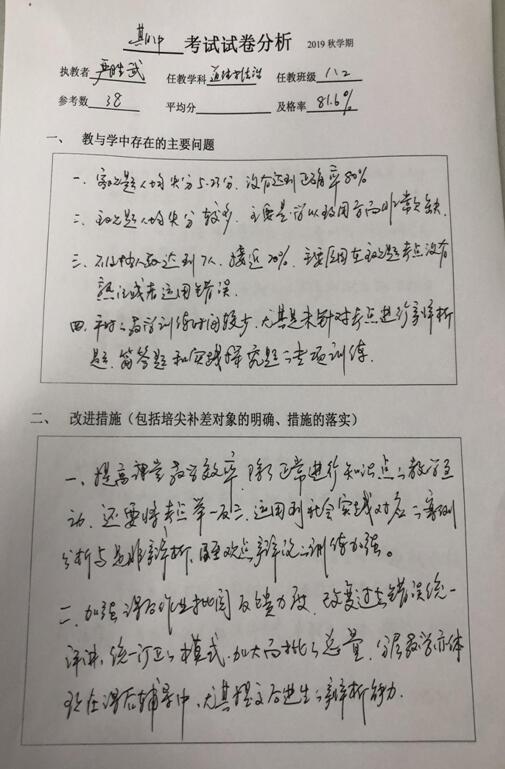 期中 考试试卷分析 2019 秋学期
执教者 严胜武 任教学科 道德与法治 任教班级 八2
参考数 38 平均分 及格率 81.6%
一、 教与学中存在的主要问题
一、客观题人均失分5.23分,没有达到正确率80%
二、主观题人均失分较多,主要是学以致用方面非常欠缺.
三、不及格人数达到7人,接近20%,主要原因在主观题考点没有
熟记或者运用错误.
四、平时之教学训练时间较少,尤其是未针对考点进行辨析
题、简答题和实践探究题之专项训练.
二、 改进措施(包括培尖补差对象的明确、措施的落实)
一、提高课堂教学效率,除了正常进行知识点之教学互
动,还要将考点举一反三,运用到社会实践对应之案例
分析与是非辨析、观点辨说之训练加强。
二、加强课后作业批阅反馈力度,改变过去错误统一
评讲,统一订正之模式,加大面批之总量,分层教学亦体
现在课后辅导中,尤其提文后进生之辩析能力.